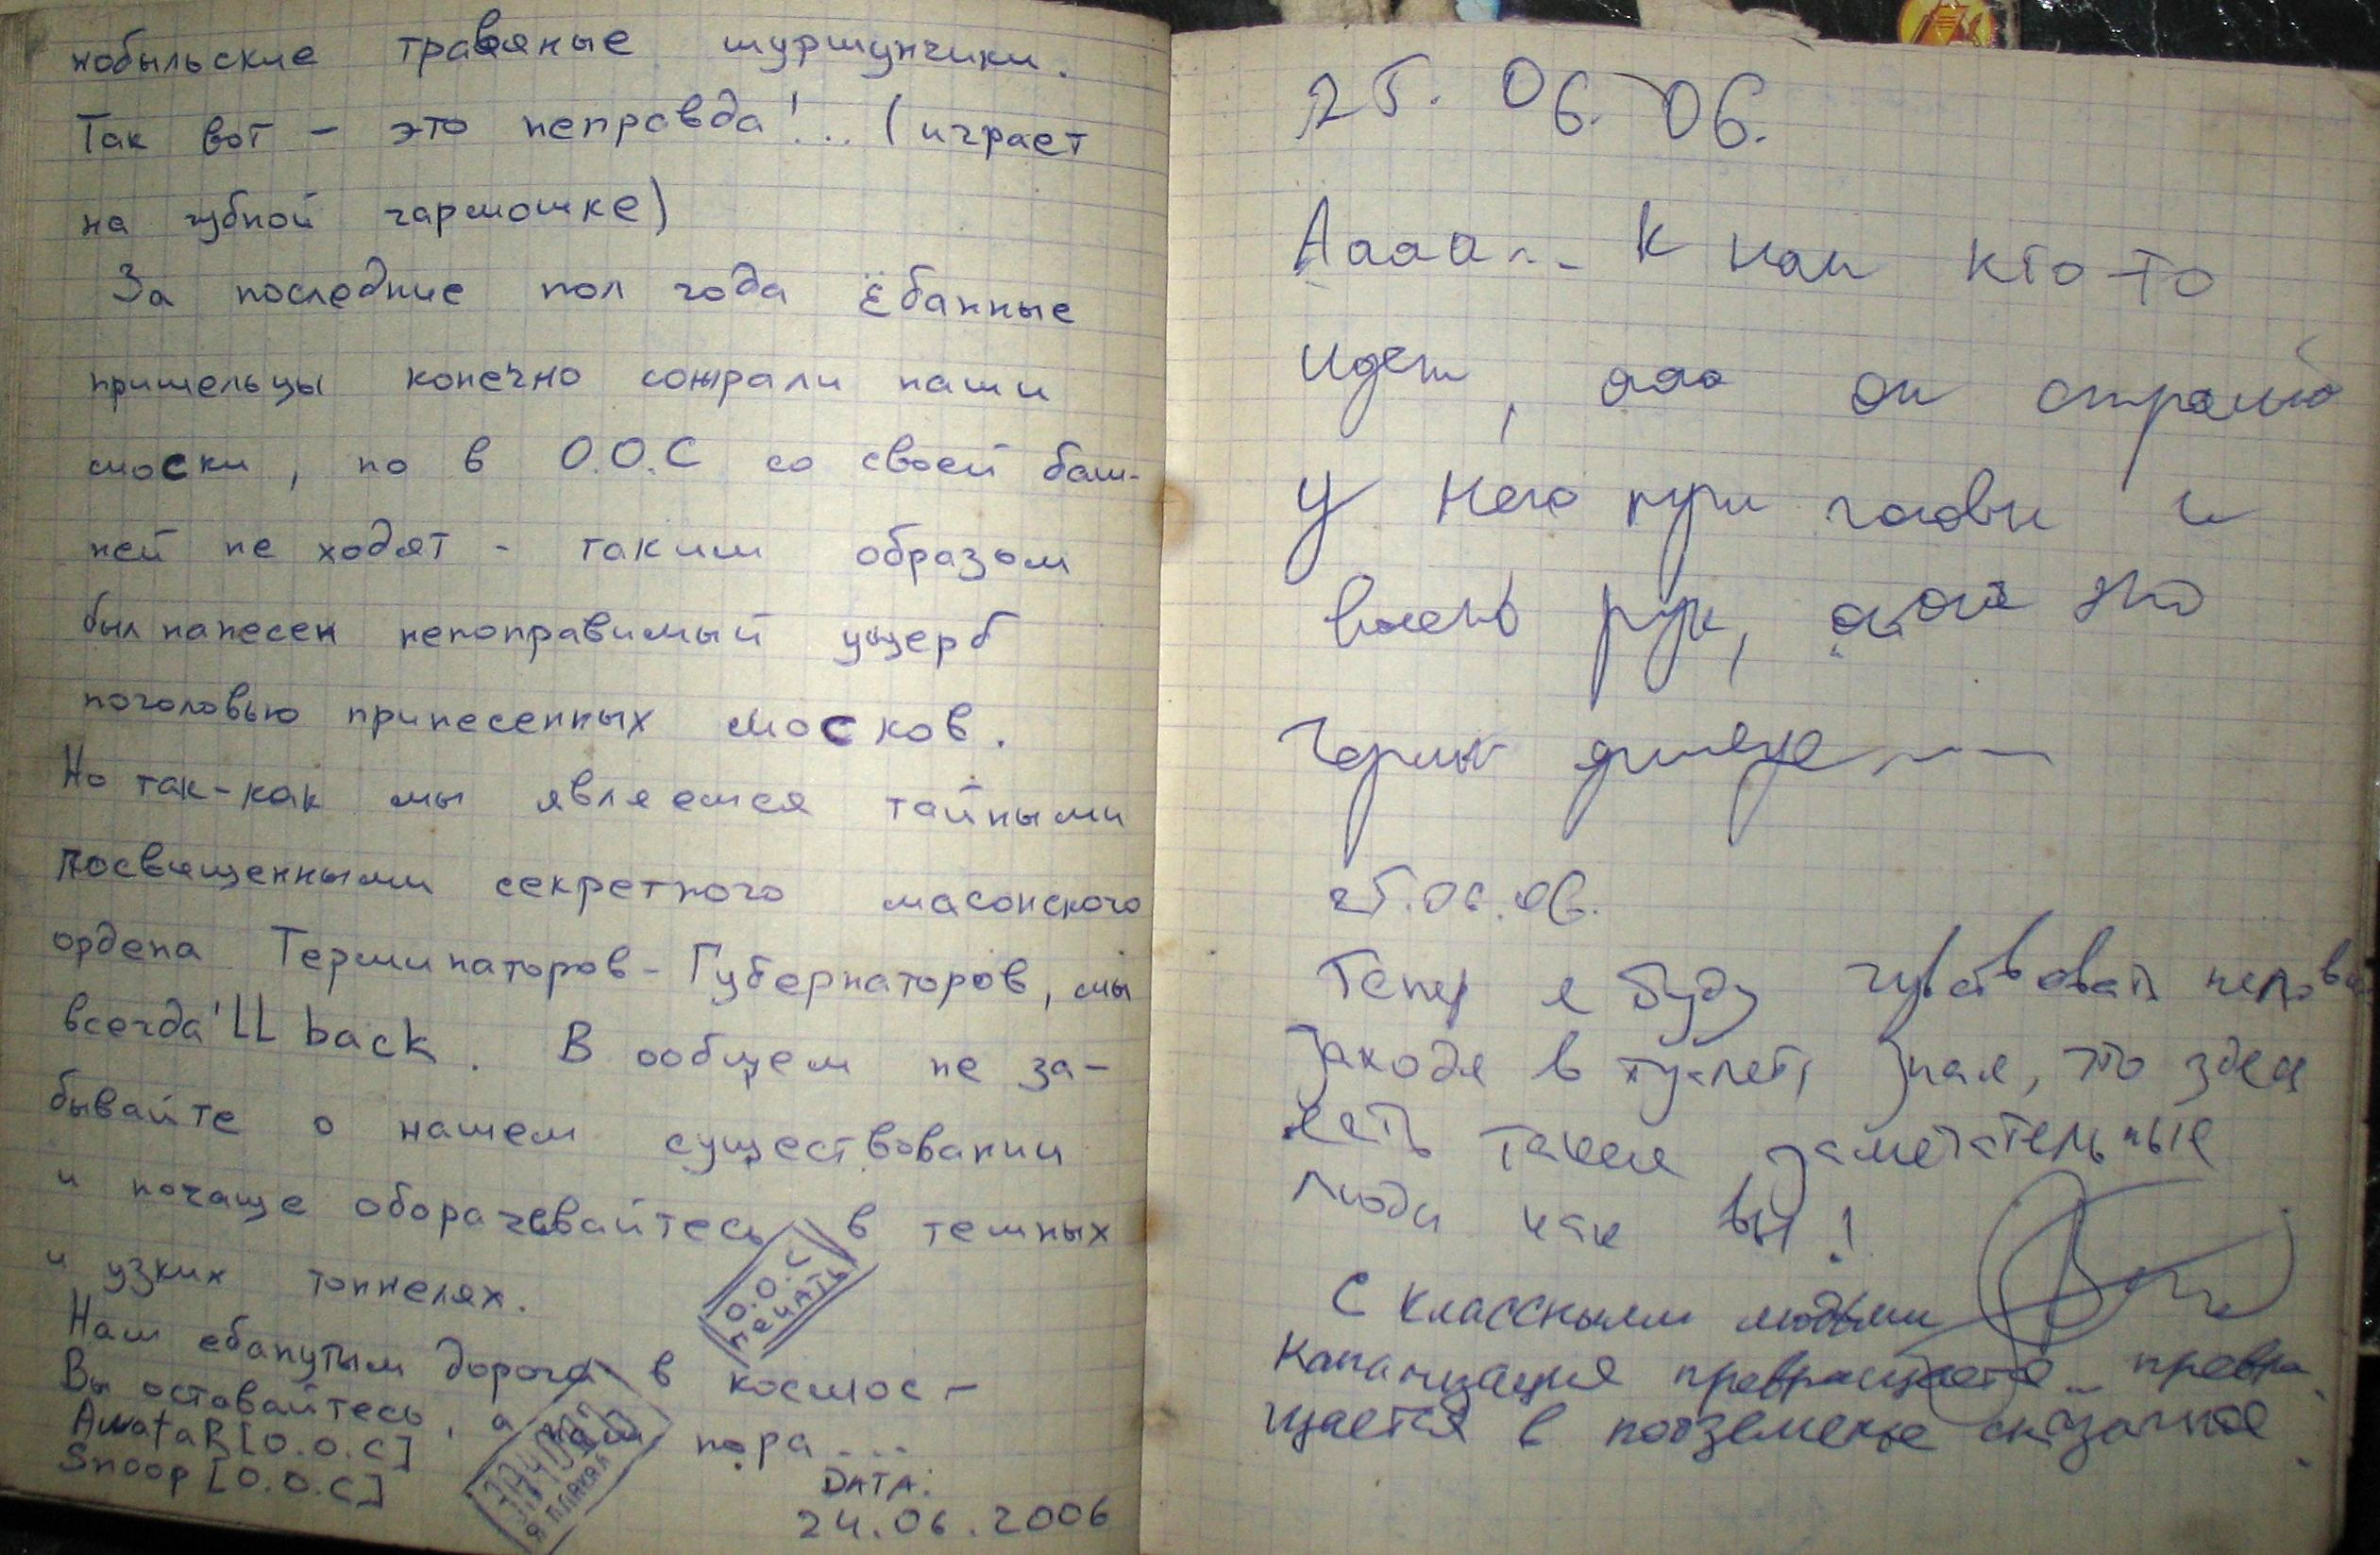 нобыльские травяные шуршунчики.
Так вот – это неправда!.. (играет
на губной гармошке)
За последние пол года Ёбанные
пришельцы конечно сожрали наши
моски, но в О.О.С со своей баш-
ней не ходят - таким образом
был нанесен непоправимый ущерб
поголовью принесенных москов.
Но так-как мы являемся тайными
посвященными секретного масонского
ордена Терминаторов-Губернаторов, мы
всегда'LL back. В ообщем не за-
бывайте о нашем существовании
и почаще оборачивайтесь в темных
и узких тоннелях.
О.О.С
ПЕЧАТЬ
Нам ебанутым дорога в космос –
Вы оставайтесь, а нам пора....
AwataR [O.O.C]
Snoop [O.O.C]
Я ПЛАКАЛ
DАТА:
24.06.2006
25. 06. 06.
Аааа... К нам кто-то
идет, ааа он страшно
У него три головы и
восемь рук, это
25.06.06.
Тепер я буду чувствовать
Заходя в туалет, зная, что здесь
есть такие замечательные
люди как вы!
С классными людьми
Канализация превращается... превра
щается в подземелье сказочное